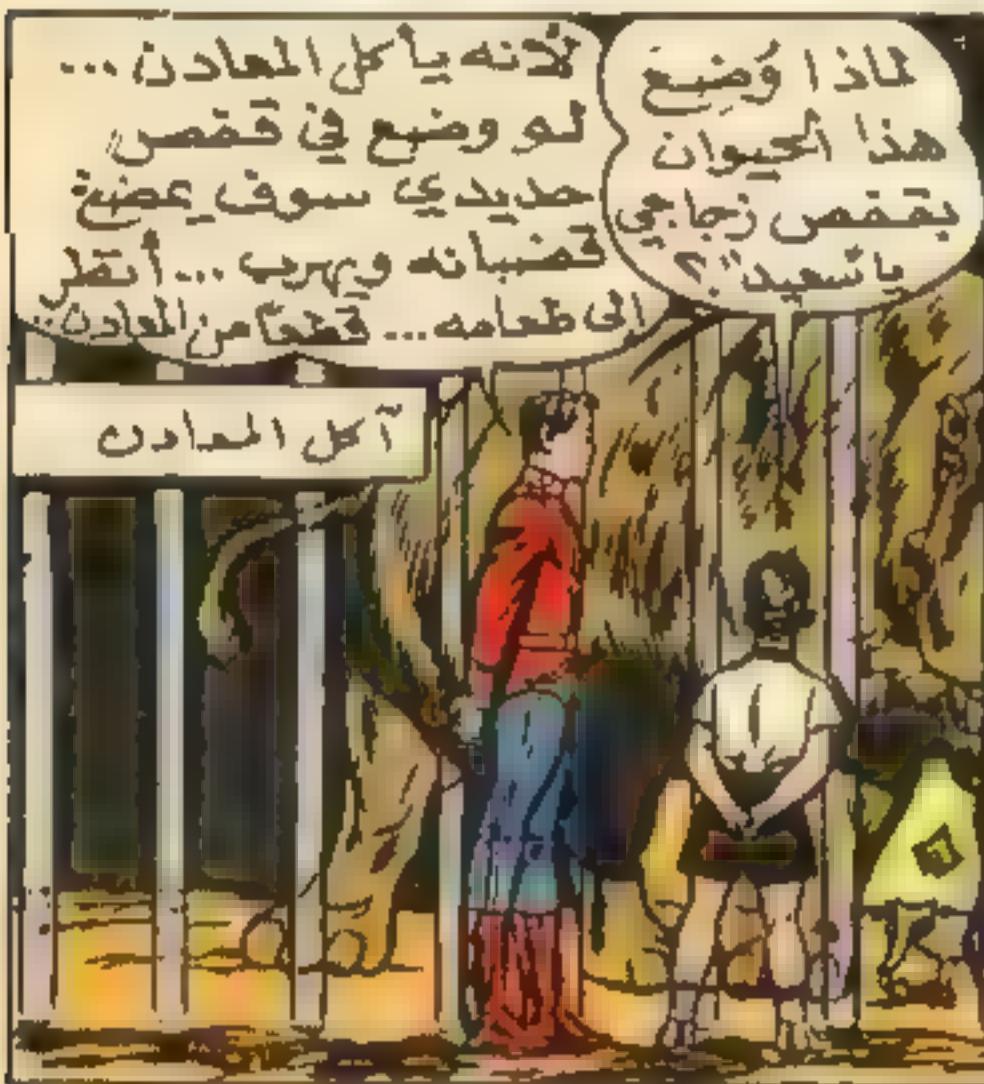 لماذا وُضِع
هذا الحيوان
بقفص زجاجي
يا "سعيد"؟
لأنه يأكل المعادن ...
لو وضع في قفص
حديدي سوف يمضغ
قضبانه ويهرب ... أنظر
الى طعامه ... قطعاً من المعادن ..
آكل المعادن